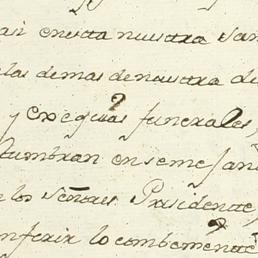 asi en esta nuestra San
las demas de nuestra di
y exequias funerales,
tumbran en semejan
e los señores Presidente,
nferir lo combeniente